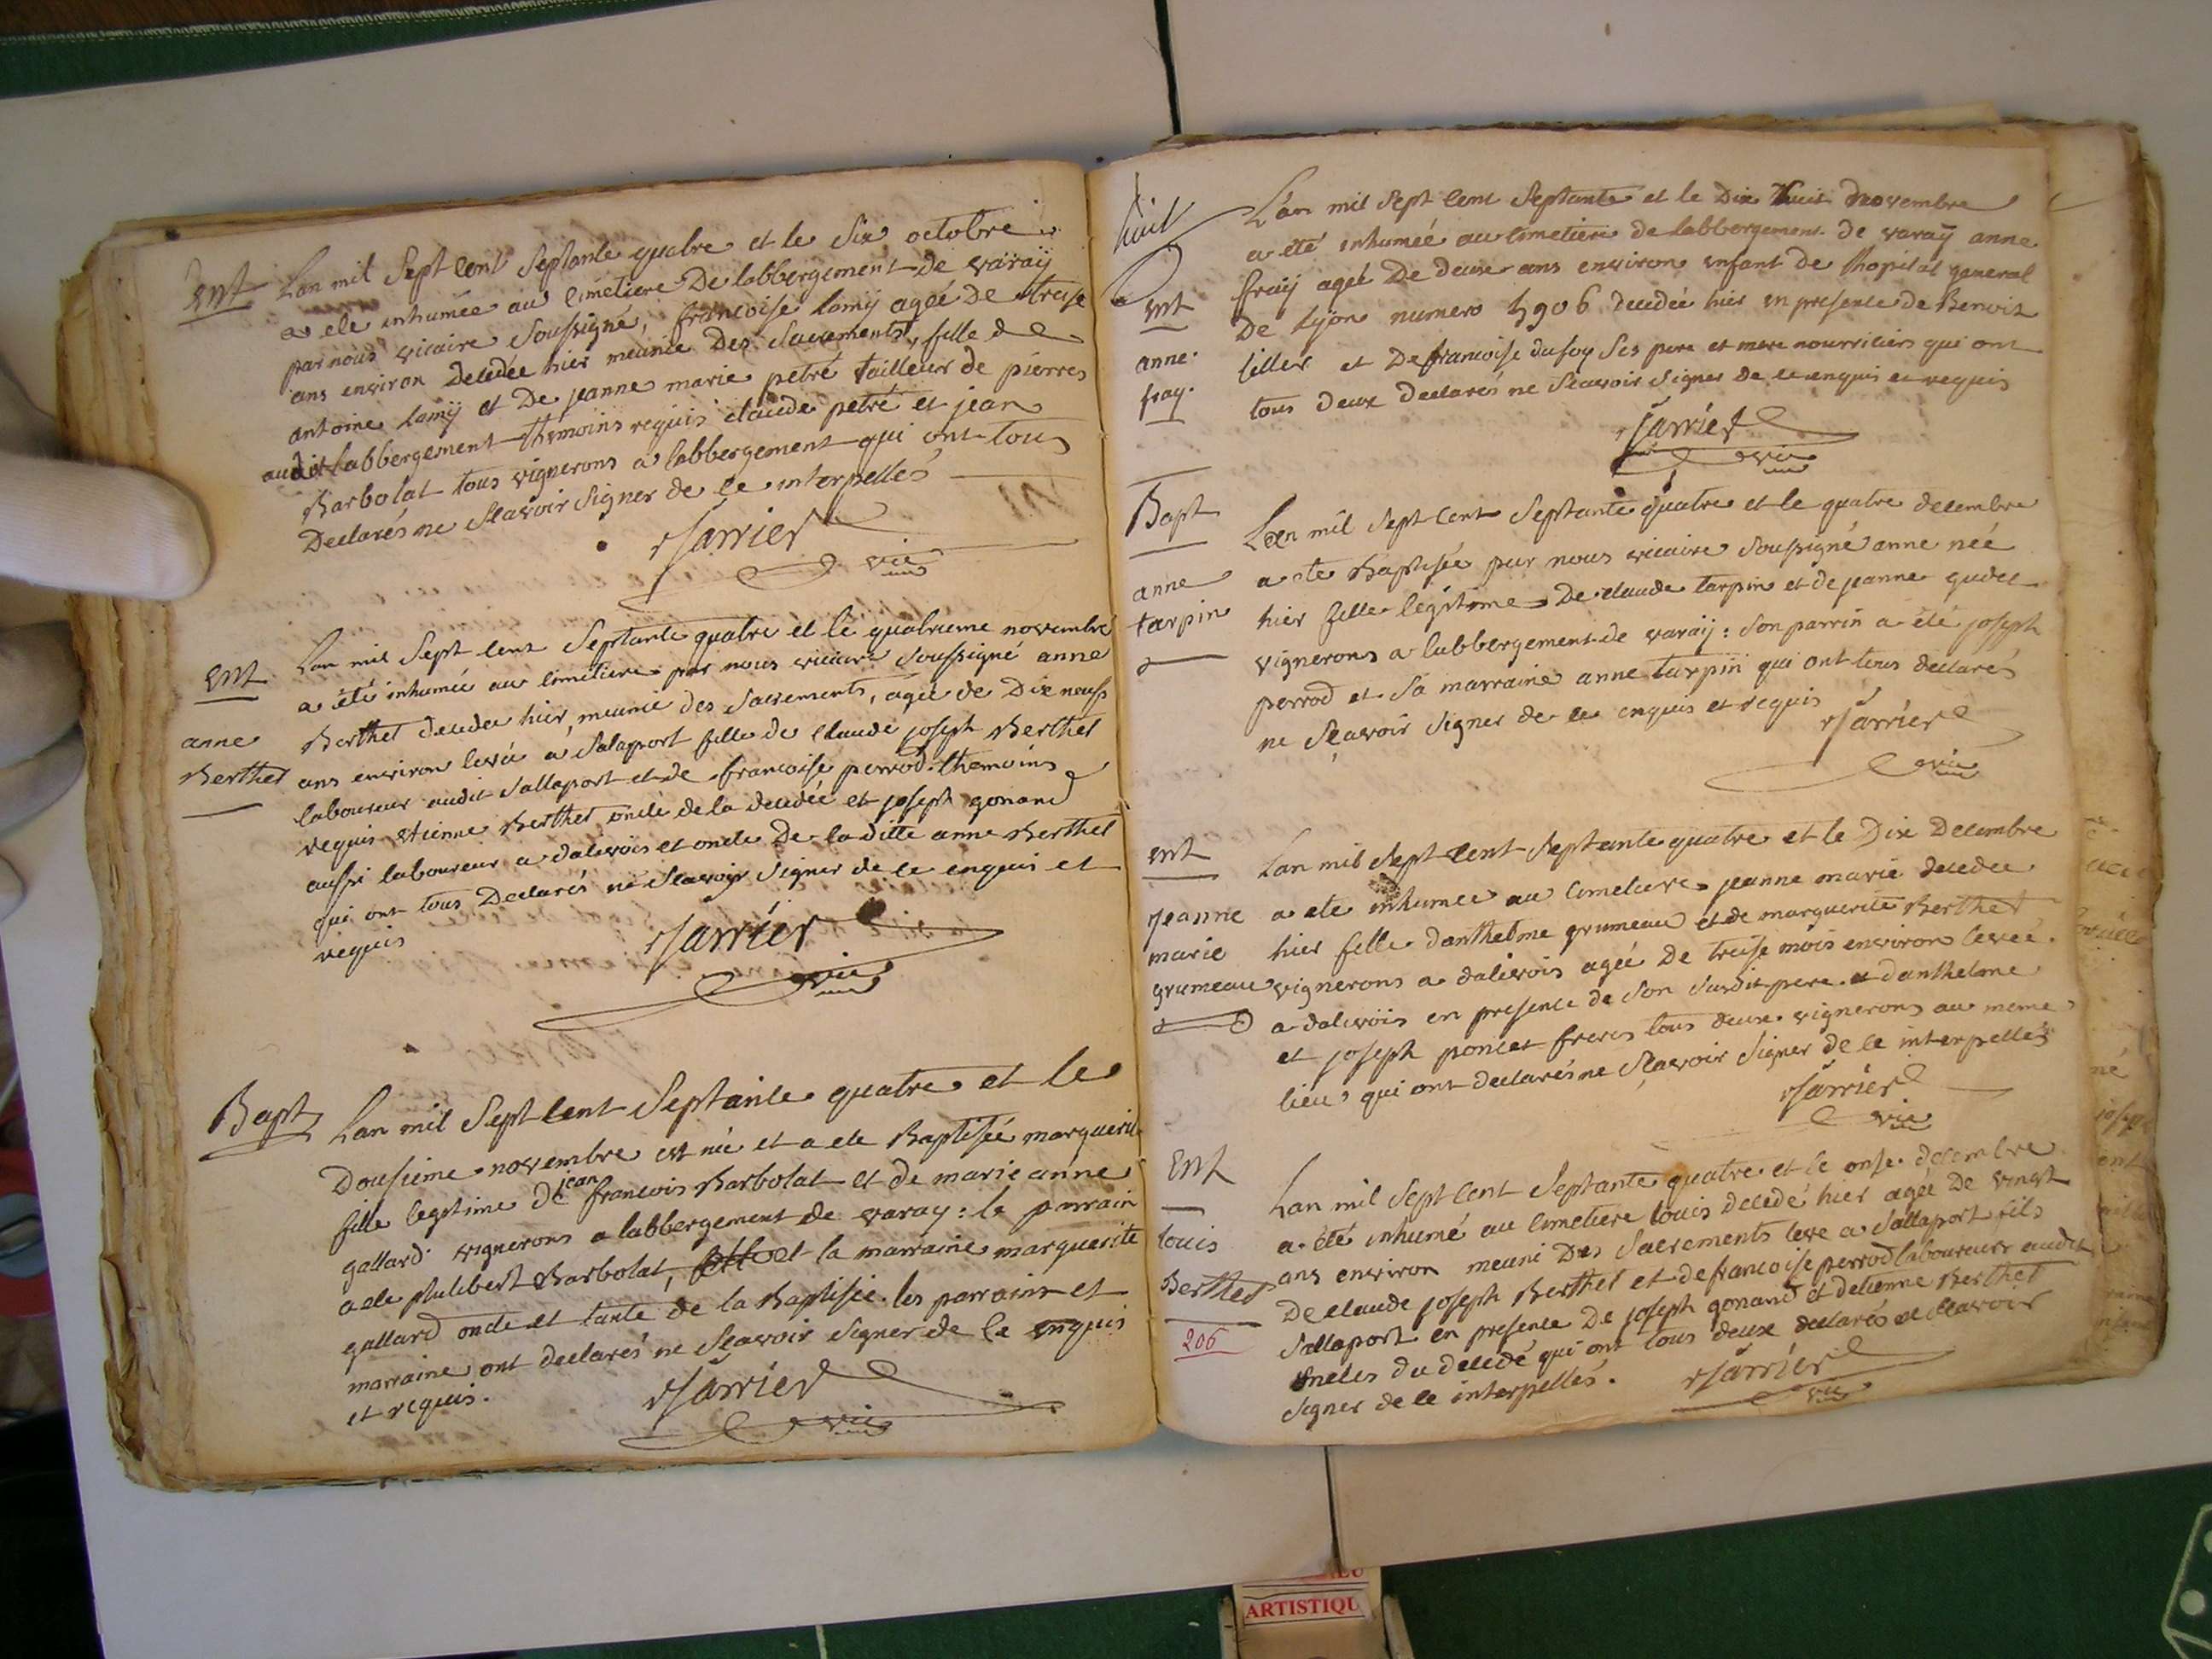 ent
Lan mil Sept cent Septante quatre et le Six octobre
a ete inhumée au cimetiere De labbergement de varaÿ
par nous vicaire Soussigné, francoise Lamÿ ageé De treise
ans environ decedée hier meunie Des Sacrements, fille de
antoine Lamÿ et De jeanne marie petré tailleur de pierres
audit labbergement themoins requis claude petré et jean
Barbolat tous vignerons a labbergement qui ont tous
Declarés ne Scavoir Signer de ce interpellés
Sarrier
vic
ent
anne
Berthet
Lan mil Sept cent Septante quatre et le quatrieme novembre
a été inhumée au cimetiere par nous vicaire Soussigné anne
Berthet decedee hier, meunie des Sacrements, ageé de Dix neuf
ans environ levée a Salaport fille de Claude joseph Berthet
laboureur audit Sallaport et de francoise perrod. themoins
requis etienne Berthet oncle de la decedée et joseph gonand
aussi laboureur a dalivois et oncle De la ditte anne Berthet
qui ont tous Declarés ne Scavoir Signer de ce enquis et
requis
Sarrier
vic
Bapt
Lan mil Sept cent Septante quatre et le
Dousieme novembre est née et a ete Baptisée marguerite
fille legitime de jean francois Barbolat et de marie anne
gallard vignerons a labbergement de varay: le parrain
a ete philibert Barbolat, et la marraine marguerite
gallard oncle et tante de la Baptisée. les parrain et
marraine ont declarés ne Scavoir Signer de ce enquis
et requis.
Sarrier
vic
huit
ent
anne
fray
L'an mil Sept cent Septante et le Dix huit novembre
a été inhumée au cimetiere de labbergement de varaÿ anne
fraÿ ageé De deux ans environ enfant de lhopital general
De Lÿon numero 1906 decedée hier en presence de Benoit
tiller et De francoise dufoy Ses pere et mere nourriciers qui ont
tous deux declarés ne Scavoir Signer de ce enquis et requis
Sarrier
vic
Bapt
anne
tarpin
Lan mil Sept cent Septante quatre et le quatre decembre
a ete Baptisée par nous vicaire Soussigné anne neé
hier fille legitime De claude tarpin et de jeanne gudet
vignerons a labbergement de varaÿ: Son parrin a été joseph
perrod et Sa marraine anne tarpin qui ont tous declarés
ne Scavoir Signer de ce enquis et requis
Sarrier
vic
ent
jeanne
marie
grumeau
Lan mil Sept Cent Septante quatre et le Dix Decembre
a ete inhumee au cimetiere jeanne marie decedee
hier fille danthelme grumeau et de marguerite Berthet
vignerons a dalivois ageé De treise mois environ leveé
a dalivois en presence de Son Susdit pere et danthelme
et joseph poncet freres tous deux vignerons au meme
lieu qui ont declarés ne Scavoir Signer de ce interpellés
Sarrier
vic
Ent
louis
Berthet
206
Lan mil Sept Cent Septante quatre et le onse decembre
a été inhumé au cimetiere louis decedé hier ageé De vingt
ans environ meuni Des Sacrements leve a Sallaport fils
De claude joseph Berthet et de francoise perrod laboureurs audit
Sallaport en presence De joseph gonand et detienne Berthet
oncles du decedé qui ont tous deux declarés ne Scavoir
Signer de ce interpellés.
Sarrier
vic
né
joseph
ARTISTIQU